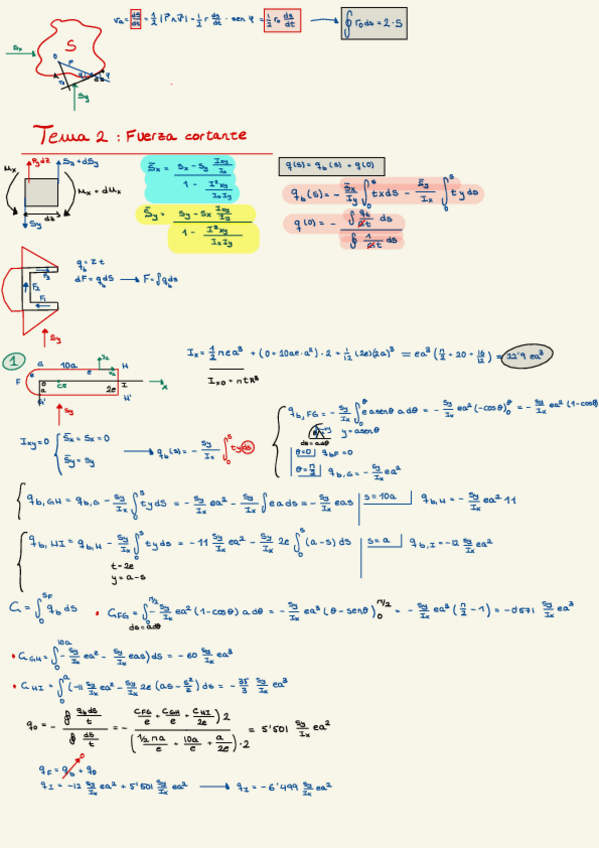 r₀ = ds/dt = 1/2 |r̄ ∧ v̄| = 1/2 r ds/dt · sen φ = 1/2 r₀ ds/dt → ∮ r₀ ds = 2·S
S
Sx
Sy
Tema 2 : Fuerza cortante
Mx
Sy + dSy
Mx + dMx
dz
Sy
S̄x = (Sx - Sy Ixy/Ix) / (1 - I²xy/IxIy)
S̄y = (Sy - Sx Ixy/Iy) / (1 - I²xy/IxIy)
q(s) = q_b(s) + q(0)
q_b(s) = - S̄x/Iy ∫₀ˢ t x ds - S̄y/Ix ∫₀ˢ t y ds
q(0) = - ∮ q_b/Gt ds / ∮ 1/Gt ds
q_b = z t
dF = q_b ds → F = ∫ q_b ds
F₃
F₂
F₁
Sy
1
A 10a e H
F I x
2e
H'
Sy
Ix = 1/2 π e a³ + (0 + 10ae·a²)·2 + 1/12 (2e)(2a)³ = ea³ (π/2 + 20 + 16/12) = 22'9 ea³
Ixo = π t R³
Ixy = 0 { S̄x = Sx = 0
S̄y = Sy
→ q_b(s) = - Sy/Ix ∫₀ˢ t y ds
q_b,FG = - Sy/Ix ∫₀^θ e a senθ a dθ = - Sy/Ix ea² (-cosθ)₀^θ = - Sy/Ix ea² (1-cosθ)
y = a senθ
ds = a dθ
θ = 0 q_bF = 0
θ = π/2 q_b,G = - Sy/Ix ea²
q_b,GH = q_b,G - Sy/Ix ∫₀ˢ t y ds = - Sy/Ix ea² - Sy/Ix ∫ e a ds = - Sy/Ix eas | s = 10a | q_b,H = - Sy/Ix ea² 11
q_b,HI = q_b,H - Sy/Ix ∫₀ˢ t y ds = - 11 Sy/Ix ea² - Sy/Ix 2e ∫₀ˢ (a-s) ds | s = a | q_b,I = -12 Sy/Ix ea²
t = 2e
y = a - s
C = ∫₀^SF q_b ds • C_FG = ∫₀^π/2 - Sy/Ix ea² (1-cosθ) a dθ = - Sy/Ix ea³ (θ - senθ)₀^π/2 = - Sy/Ix ea³ (π/2 - 1) = -0'571 Sy/Ix ea³
ds = a dθ
• C_GH = ∫₀^10a (- Sy/Ix ea² - Sy/Ix eas) ds = - 60 Sy/Ix ea³
• C_HI = ∫₀^a (-11 Sy/Ix ea² - Sy/Ix 2e (as - s²/2)) ds = - 35/3 Sy/Ix ea³
q₀ = - ∮ q_b ds/t / ∮ ds/t = - (C_FG/e + C_GH/e + C_HI/2e) 2 / (1/2 πa/e + 10a/e + a/2e)·2 = 5'501 Sy/Ix ea²
q_F = q_b + q₀
0
q_I = -12 Sy/Ix ea² + 5'501 Sy/Ix ea² → q_I = -6'499 Sy/Ix ea²